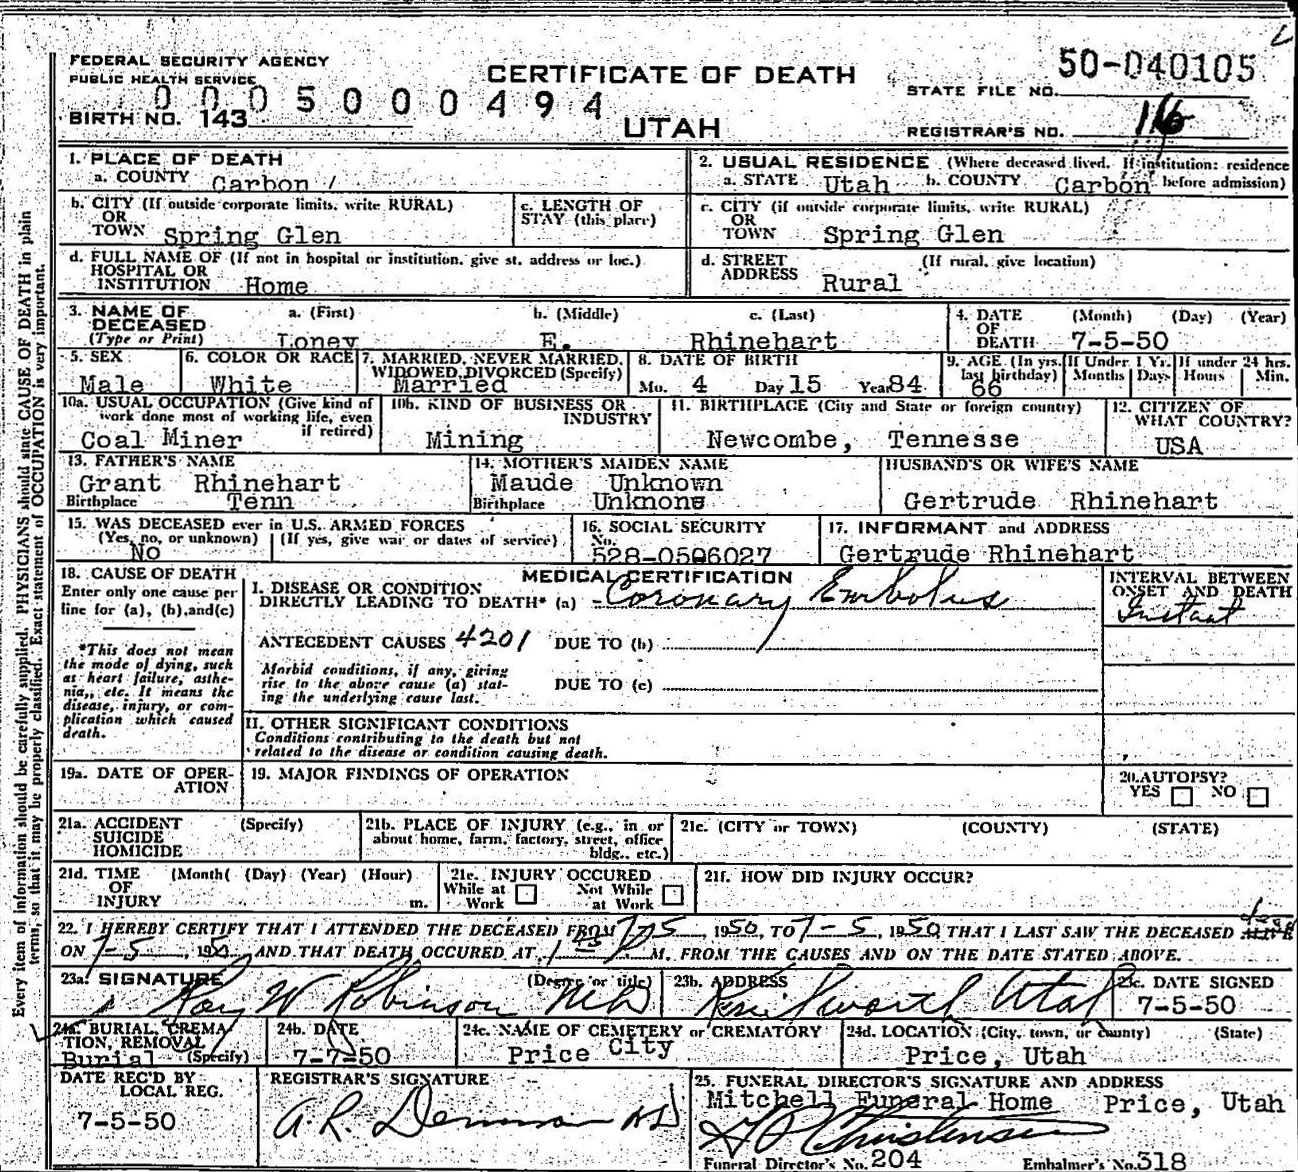 FEDERAL SECURITY AGENCY
PUBLIC HEALTH SERVICE
CERTIFICATE OF DEATH
50-040105
STATE FILE NO.
0005000494
BIRTH NO. 143
UTAH
REGISTRAR'S NO. 116
1. PLACE OF DEATH
a. COUNTY Carbon
2. USUAL RESIDENCE (Where deceased lived. If institution: residence before admission)
a. STATE Utah b. COUNTY Carbon
b. CITY (If outside corporate limits, write RURAL)
OR
TOWN Spring Glen
c. LENGTH OF
STAY (this place)
c. CITY (if outside corporate limits, write RURAL)
OR
TOWN Spring Glen
d. FULL NAME OF (If not in hospital or institution, give st. address or loc.)
HOSPITAL OR
INSTITUTION Home
d. STREET (If rural, give location)
ADDRESS Rural
3. NAME OF DECEASED
(Type or Print)
a. (First) b. (Middle) c. (Last)
Loney E. Rhinehart
4. DATE OF DEATH
(Month) (Day) (Year)
7-5-50
5. SEX
Male
6. COLOR OR RACE
White
7. MARRIED, NEVER MARRIED,
WIDOWED, DIVORCED (Specify)
Married
8. DATE OF BIRTH
Mo. 4 Day 15 Year 84
9. AGE (In yrs. last birthday)
66
If Under 1 Yr.
Months Days
If under 24 hrs.
Hours Min.
10a. USUAL OCCUPATION (Give kind of
work done most of working life, even
if retired)
Coal Miner
10b. KIND OF BUSINESS OR
INDUSTRY
Mining
11. BIRTHPLACE (City and State or foreign country)
Newcombe, Tennesse
12. CITIZEN OF
WHAT COUNTRY?
USA
13. FATHER'S NAME
Grant Rhinehart
Birthplace Tenn
14. MOTHER'S MAIDEN NAME
Maude Unknown
Birthplace Unknons
HUSBAND'S OR WIFE'S NAME
Gertrude Rhinehart
15. WAS DECEASED ever in U.S. ARMED FORCES
(Yes, no, or unknown) (If yes, give war or dates of service)
No
16. SOCIAL SECURITY
No.
528-0506027
17. INFORMANT and ADDRESS
Gertrude Rhinehart
18. CAUSE OF DEATH
Enter only one cause per
line for (a), (b), and (c)
*This does not mean
the mode of dying, such
as heart failure, asthe-
nia, etc. It means the
disease, injury, or com-
plication which caused
death.
MEDICAL CERTIFICATION
I. DISEASE OR CONDITION
DIRECTLY LEADING TO DEATH* (a) Coronary Embolus
INTERVAL BETWEEN
ONSET AND DEATH
Instant
ANTECEDENT CAUSES 4201 DUE TO (b)
Morbid conditions, if any, giving
rise to the above cause (a) stat-
ing the underlying cause last.
DUE TO (c)
II. OTHER SIGNIFICANT CONDITIONS
Conditions contributing to the death but not
related to the disease or condition causing death.
19a. DATE OF OPER-
ATION
19. MAJOR FINDINGS OF OPERATION
20. AUTOPSY?
YES NO
21a. ACCIDENT (Specify)
SUICIDE
HOMICIDE
21b. PLACE OF INJURY (e.g., in or
about home, farm, factory, street, office
bldg., etc.)
21c. (CITY or TOWN) (COUNTY) (STATE)
21d. TIME (Month( (Day) (Year) (Hour)
OF
INJURY m.
21e. INJURY OCCURED
While at Work Not While at Work
21f. HOW DID INJURY OCCUR?
22. I HEREBY CERTIFY THAT I ATTENDED THE DECEASED FROM 7-5, 1950, TO 7-5, 1950 THAT I LAST SAW THE DECEASED ALIVE dead
ON 7-5, 1950, AND THAT DEATH OCCURED AT 1 45 P M. FROM THE CAUSES AND ON THE DATE STATED ABOVE.
23a. SIGNATURE (Degree or title)
Roy W Robinson MD
23b. ADDRESS
Kenilworth Utah
23c. DATE SIGNED
7-5-50
24a. BURIAL, CREMA-
TION, REMOVAL
Burial (Specify)
24b. DATE
7-7-50
24c. NAME OF CEMETERY or CREMATORY
Price City
24d. LOCATION (City, town, or county) (State)
Price, Utah
DATE REC'D BY
LOCAL REG.
7-5-50
REGISTRAR'S SIGNATURE
A. R. Demman MD
25. FUNERAL DIRECTOR'S SIGNATURE AND ADDRESS
Mitchell Funeral Home Price, Utah
Christensen
Funeral Director's No. 204 Embalmer's No. 318
Every item of information should be carefully supplied. PHYSICIANS should state CAUSE OF DEATH in plain
terms, so that it may be properly classified. Exact statement of OCCUPATION is very important.